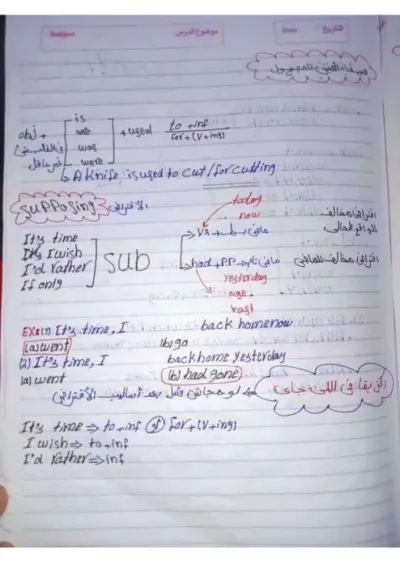 Subject
موضوع الدرس
Date
التاريخ
صيغة المبنى للمجهول
obj + [ is
are
was
were ] + used to + inf / for + (V + ing)
↳ A Knife is used to cut / for cutting
supposing الافتراض
today
now
It's time
It's I wish
I'd rather
If only
] sub
→ V2 ماضى بسيط
→ had + P.P ماضى تام
افتراض مخالف
للواقع الحالى
افتراض مخالف للماضى
yesterday
ago
last
EX:(1) It's time, I back home now
(a) went (b) go
(2) It's time, I back home yesterday
(a) went (b) had gone
لو مجاش فاعل بعد أساليب الافتراض
It's time ⇒ to + inf or for + (V + ing)
I wish ⇒ to + inf
I'd rather ⇒ inf